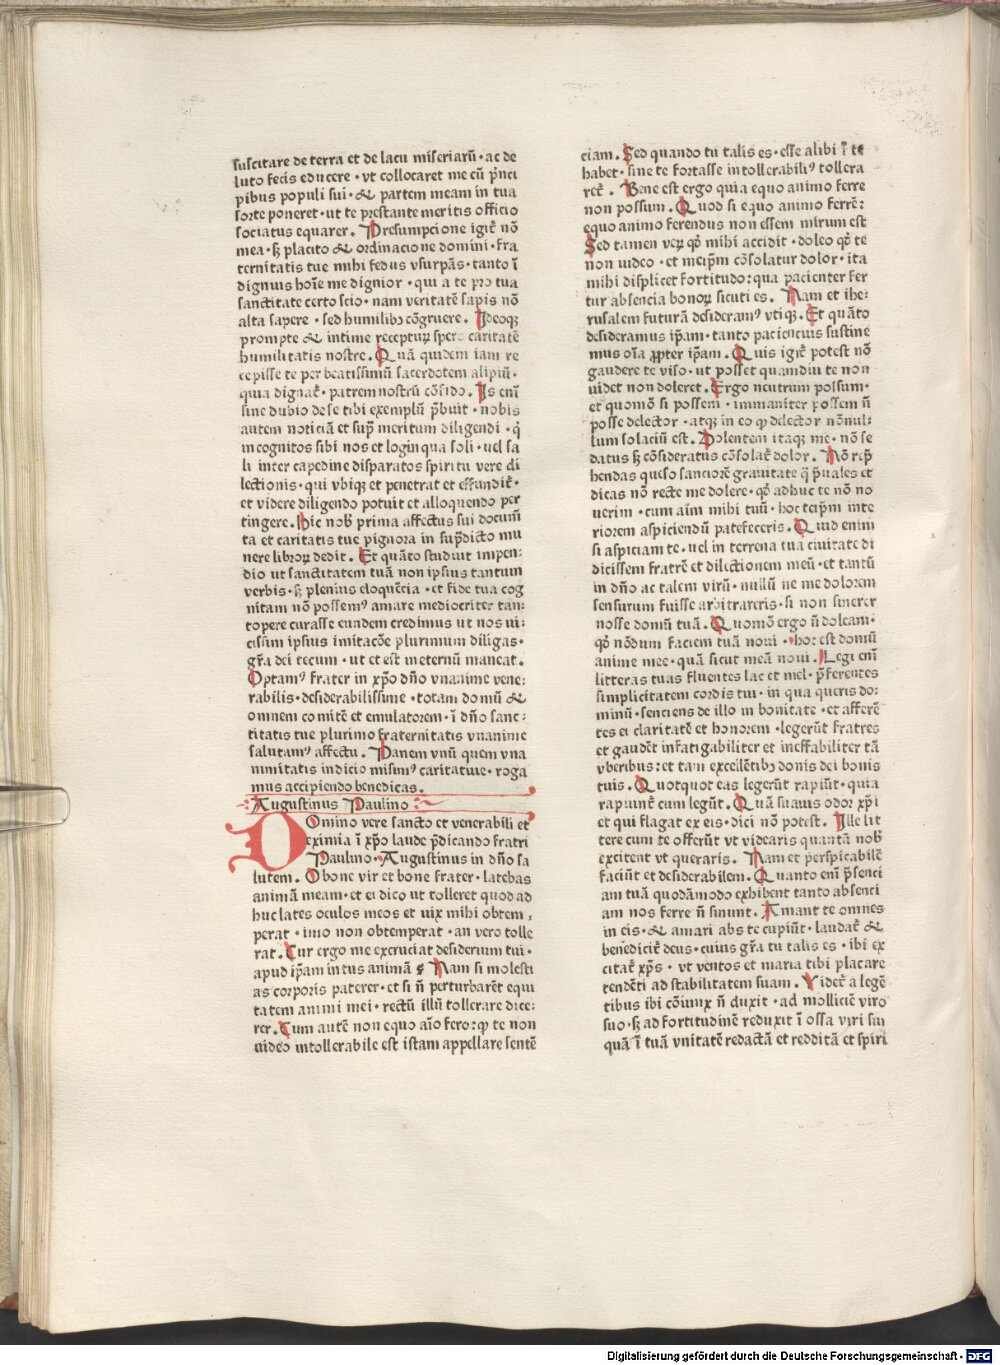 suscitare de terra et de lacu miseriarū · ac de
luto fecis educere · vt collocaret me cū p̄nci
pibus populi sui · & partem meam in tua
sorte poneret · ut te prestante meritis officio
sociatus equarer . Presumpcione igit̄ nō
mea · sꝫ placito & ordinacione domini · fra
ternitatis tue mihi fedus vsurpās · tanto ī
dignuis hoīe me dignior · qui a te pro tua
sanctitate certo scio · nam veritatē sapis nō
alta sapere · sed humilibꝫ cōgruere . Ideoqꝫ
prompte & intime recepturꝫ spero caritatē
humilitatis nostre . Quā quidem iam re
cepisse te per beatissimū sacerdotem alipiū ·
quia dignat̄ · patrem nostrū cōfido . Is enī
sine dubio de se tibi exemplū p̄buit · nobis
autem noticiā et sup̄ meritum diligendi · q̄
incognitos sibi nos et longinqua soli · uel sa
li inter capedine disparatos spiritu vere di
lectionis · qui vbiqꝫ et penetrat et effundit̄ ·
et videre diligendo potuit et alloquendo per
tingere . Hic nob̄ prima affectus sui docum̄
ta et caritatis tue pignora in sup̄dicto mu
nere librorꝫ dedit . Et quāto studuit impen-
dio ut sanctitatem tuā non ipsius tantum
verbis · sꝫ plenius eloquēcia · et fide tua cog
nitam nō possemꝰ amare mediocriter tan:
topere curasse eundem credimus ut nos ui:
cissim ipsius imitacōe plurimum diligas ·
gr̄a dei tecum · ut et est meternū maneat .
Optamꝰ frater in xp̄o dn̄o vnanime vene:
rabilis · desiderabilissime · totam domū &
omnem comitē et emulatorem · ī dn̄o sanc:
titatis tue plurimo fraternitatis vnanime
salutamꝰ affectu . Panem vnū quem vna
nimitatis indicio misimꝰ caritatiue · roga
mus accipiendo benedicas .
Augustinus Paulino
Domino vere sancto et venerabili et
eximia ī xp̄o laude p̄dicando fratri
Paulino · Augustinus in dn̄o sa
lutem . O bone vir et bone frater · latebas
animā meam · et ei dico ut tolleret quod ad
huc lates oculos meos et uix mihi obtem,
perat · imo non obtemperat · an vero tolle
rat . Cur ergo me excruciat desiderium tui ·
apud ip̄am intus animā ? Nam si molesti
as corporis paterer · et si n̄ perturbarēt equi
tatem animi mei · rectū illū tollerare dice:
rer . Cum autē non equo aīo fero: ꝙ te non
uideo intollerabile est istam appellare sentē
ciam . Sed quando tu talis es · esse alibi ī te
habet · sine te fortasse intollerabiliꝰ tollera
ret̄ . Bene est ergo quia equo animo ferre
non possum . Quod si equo animo ferrē:
equo animo ferendus non essem mirum est
Sed tamen verꝫ qd̄ mihi accidit · doleo qd̄ te
non uideo · et meip̄m cōsolatur dolor · ita
mihi displicet fortitudo: qua pacienter fer
tur absencia bonorꝫ sicuti es . Nam et ihe:
rusalem futurā desideramꝰ vtiqꝫ . Et quāto
desideramus ip̄am · tanto paciencius sustine
mus oīa ꝓpter ip̄am . Quis igit̄ potest nō
gaudere te viso · ut posset quamdiu te non
uidet non doleret . Ergo neutrum possum ·
et quomō si possem · immaniter possem n̄
posse delector · atqꝫ in eo ꝙ delector nōnul:
lum solaciū est . Dolentem itaqꝫ me · nō se
datus sꝫ cōsideratus cōsolat̄ dolor . Nō rep̄
hendas queso sanctiorē grauitate q̄ p̄uales et
dicas nō recte me dolere · qd̄ adhuc te nō no
uerim · cum aīm mihi tuū · hoc teip̄m inte
riorem aspiciendū patefeceris . Quid enim
si aspiciam te . uel in terrena tua ciuitate di
dicissem fratrē et dilectionem meū · et tantū
in dn̄o ac talem virū · nullū ne me dolorem
sensurum fuisse arbitrareris · si non sinerer
nosse domū tuā . Quomō ergo n̄ doleam ·
qd̄ nōdum faciem tuā noui · hoc est domū
anime mee · quā sicut meā noui . Legi enī
litteras tuas fluentes lac et mel · p̄ferentes
simplicitatem cordis tui · in qua queris do:
minū · senciens de illo in bonitate · et afferē
tes ei claritatē et honorem · legerūt fratres
et gaudēt infatigabiliter et ineffabiliter tā
vberibus: et tam excellētibꝫ donis dei bonis
tuis . Quotquot eas legerūt rapiūt · quia
rapiunt̄ cum legūt . Quā suauis odor xp̄i
et qui flagat ex eis · dici nō potest . Ille lit
tere cum te offerūt vt videaris quantā nob̄
excitent vt queraris . Nam et perspicabilē
faciūt et desiderabilem . Quanto enī p̄senci
am tuā quodāmodo exhibent tanto absenci
am nos ferre n̄ sinunt . Amant te omnes
in eis · & amari abs te cupiūt · laudat̄ &
benēdicit̄ deus · cuius gr̄a tu talis es · ibi ex
citat̄ xp̄s · vt ventos et maria tibi placare
tendēti ad stabilitatem suam . Videt̄ a legē
tibus ibi cōiunx n̄ duxit · ad molliciē viro
suo · sꝫ ad fortitudinē reduxit ī ossa viri sui
quā ī tuā vnitatē redactā et redditā et spiri
Digitalisierung gefördert durch die Deutsche Forschungsgemeinschaft - DFG